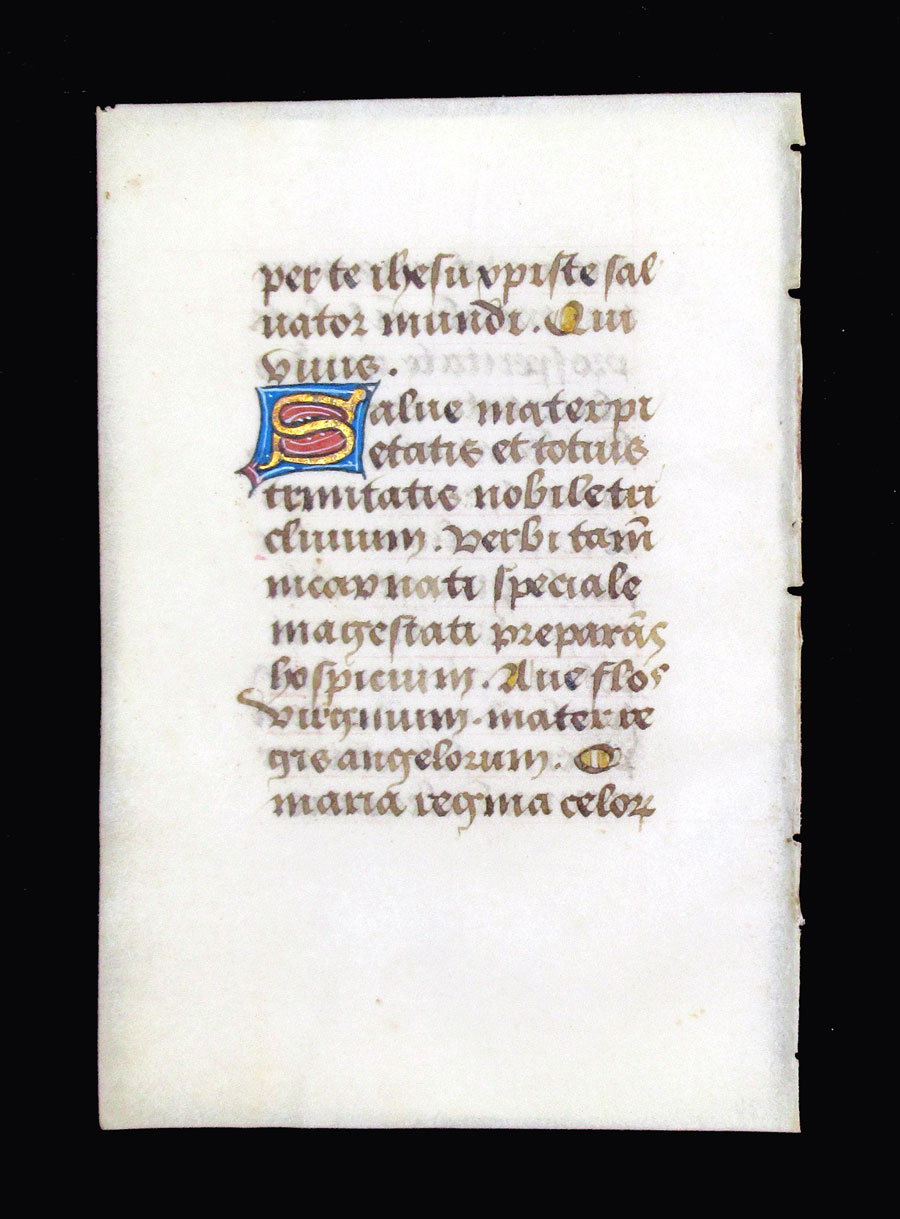 per te ihesu xpiste sal
uator mundi. Qui
viuis.
Salue mater pi
etatis et totius
trinitatis nobile tri
clinium. Verbi tam̃
incarnati speciale
magestati preparãs
hospicium. Aue flos
virginum. mater re
gis angelorum. O
maria regina celoꝝ